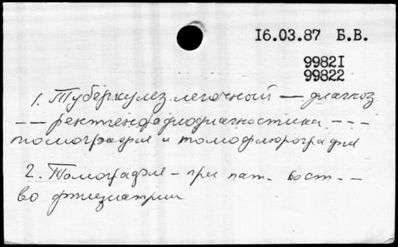 16.03.87 Б.В.
99821
99822
1. Туберкулез легочный — диагноз
-- рентгенодиагностика ---
томография и томофлюорография
2. Томография - при пат. сост. --
во фтизиатрии